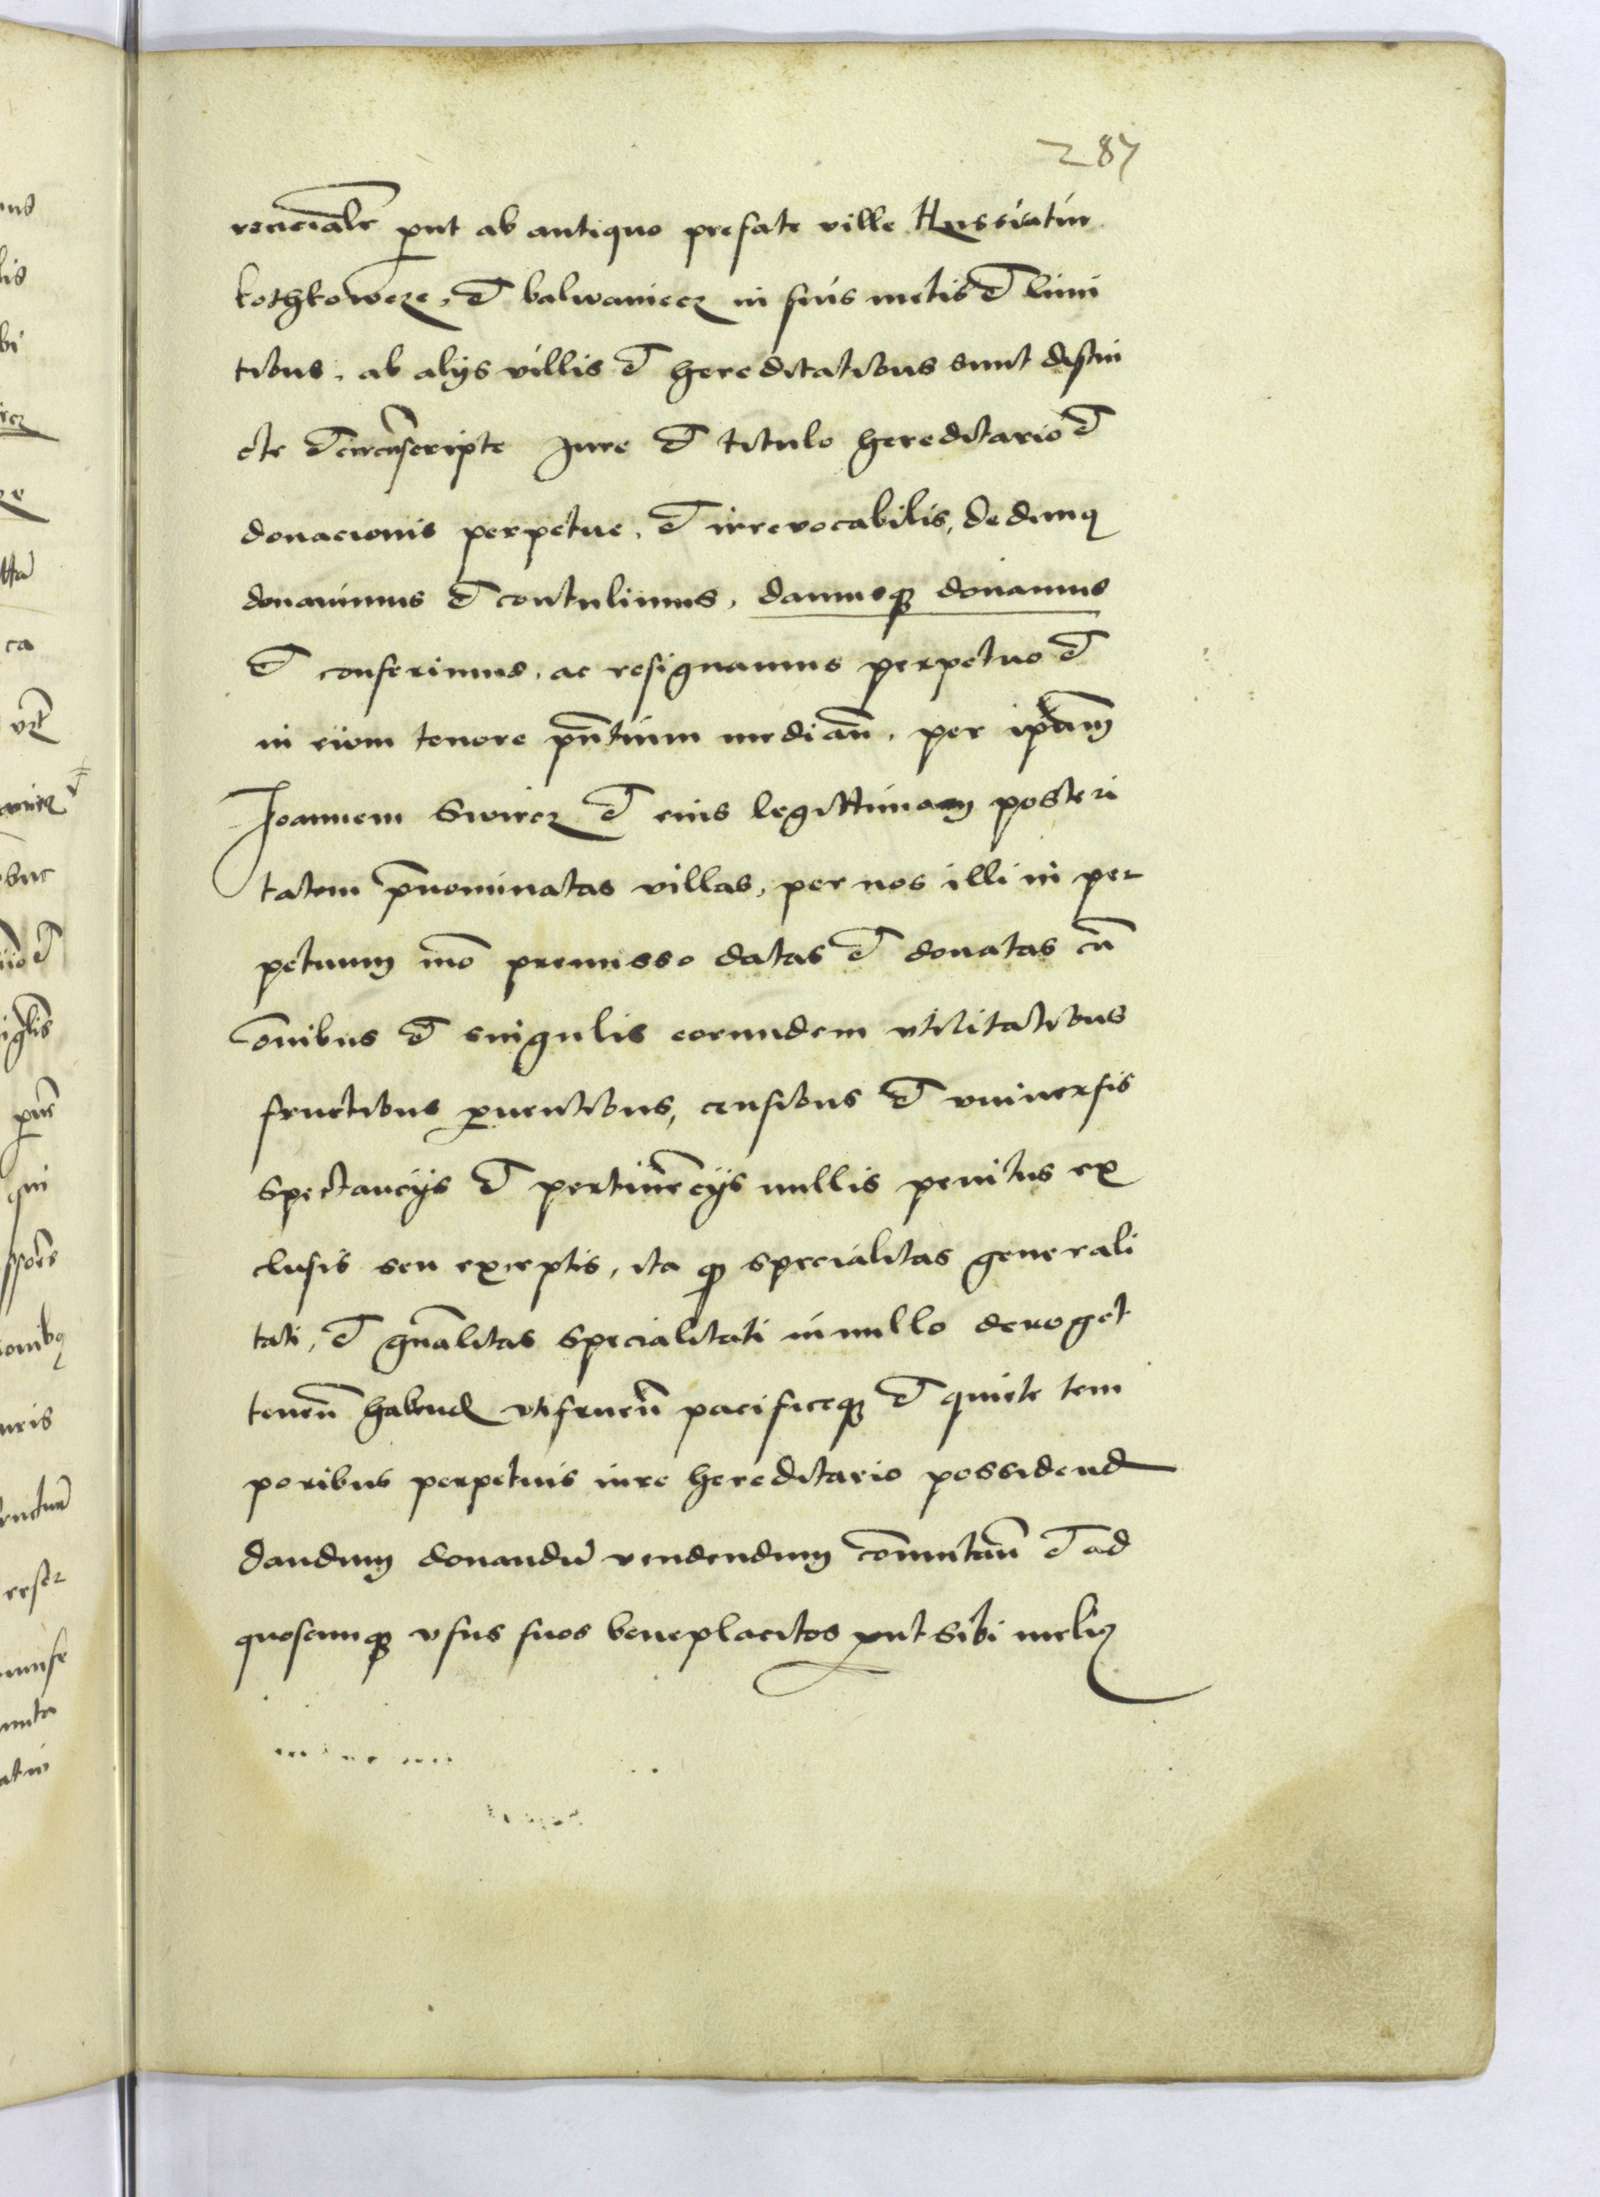 287
renciale put ab antiquo prefate ville Hussiatin
kothkowcze, et balwaniecz in suis metis et limi
tibus, ab alijs villis et hereditatibus sunt distin
cte et circumscripte Jure et titulo hereditario et
donacionis perpetue, et irrevocabilis, dedimus
donavimus et contulimus, damusque donamus
et conferimus, ac resignamus perpetuo et
in evom tenore pntium median. per ipsam
Joannem Swircz et eius legittimam posteri
tatem prenominatas villas, per nos illi in per
petuum mo premisso datas et donatas cu
omnibus et singulis eorundem vtilitatibus
fructibus prventibus, censibus et vniversis
spectancijs et pertinencijs nullis penitus ex
clusis seu exceptis, ita quod specialitas generali
tati, et gnalitas specialitati in nullo deroget
tenen habend vtifruen pacificeque et quiete tem
poribus perpetuis iure hereditario possidend
dandum donandu vendendum comutan et ad
quoscumque vsus suos beneplacitos put sibi melius